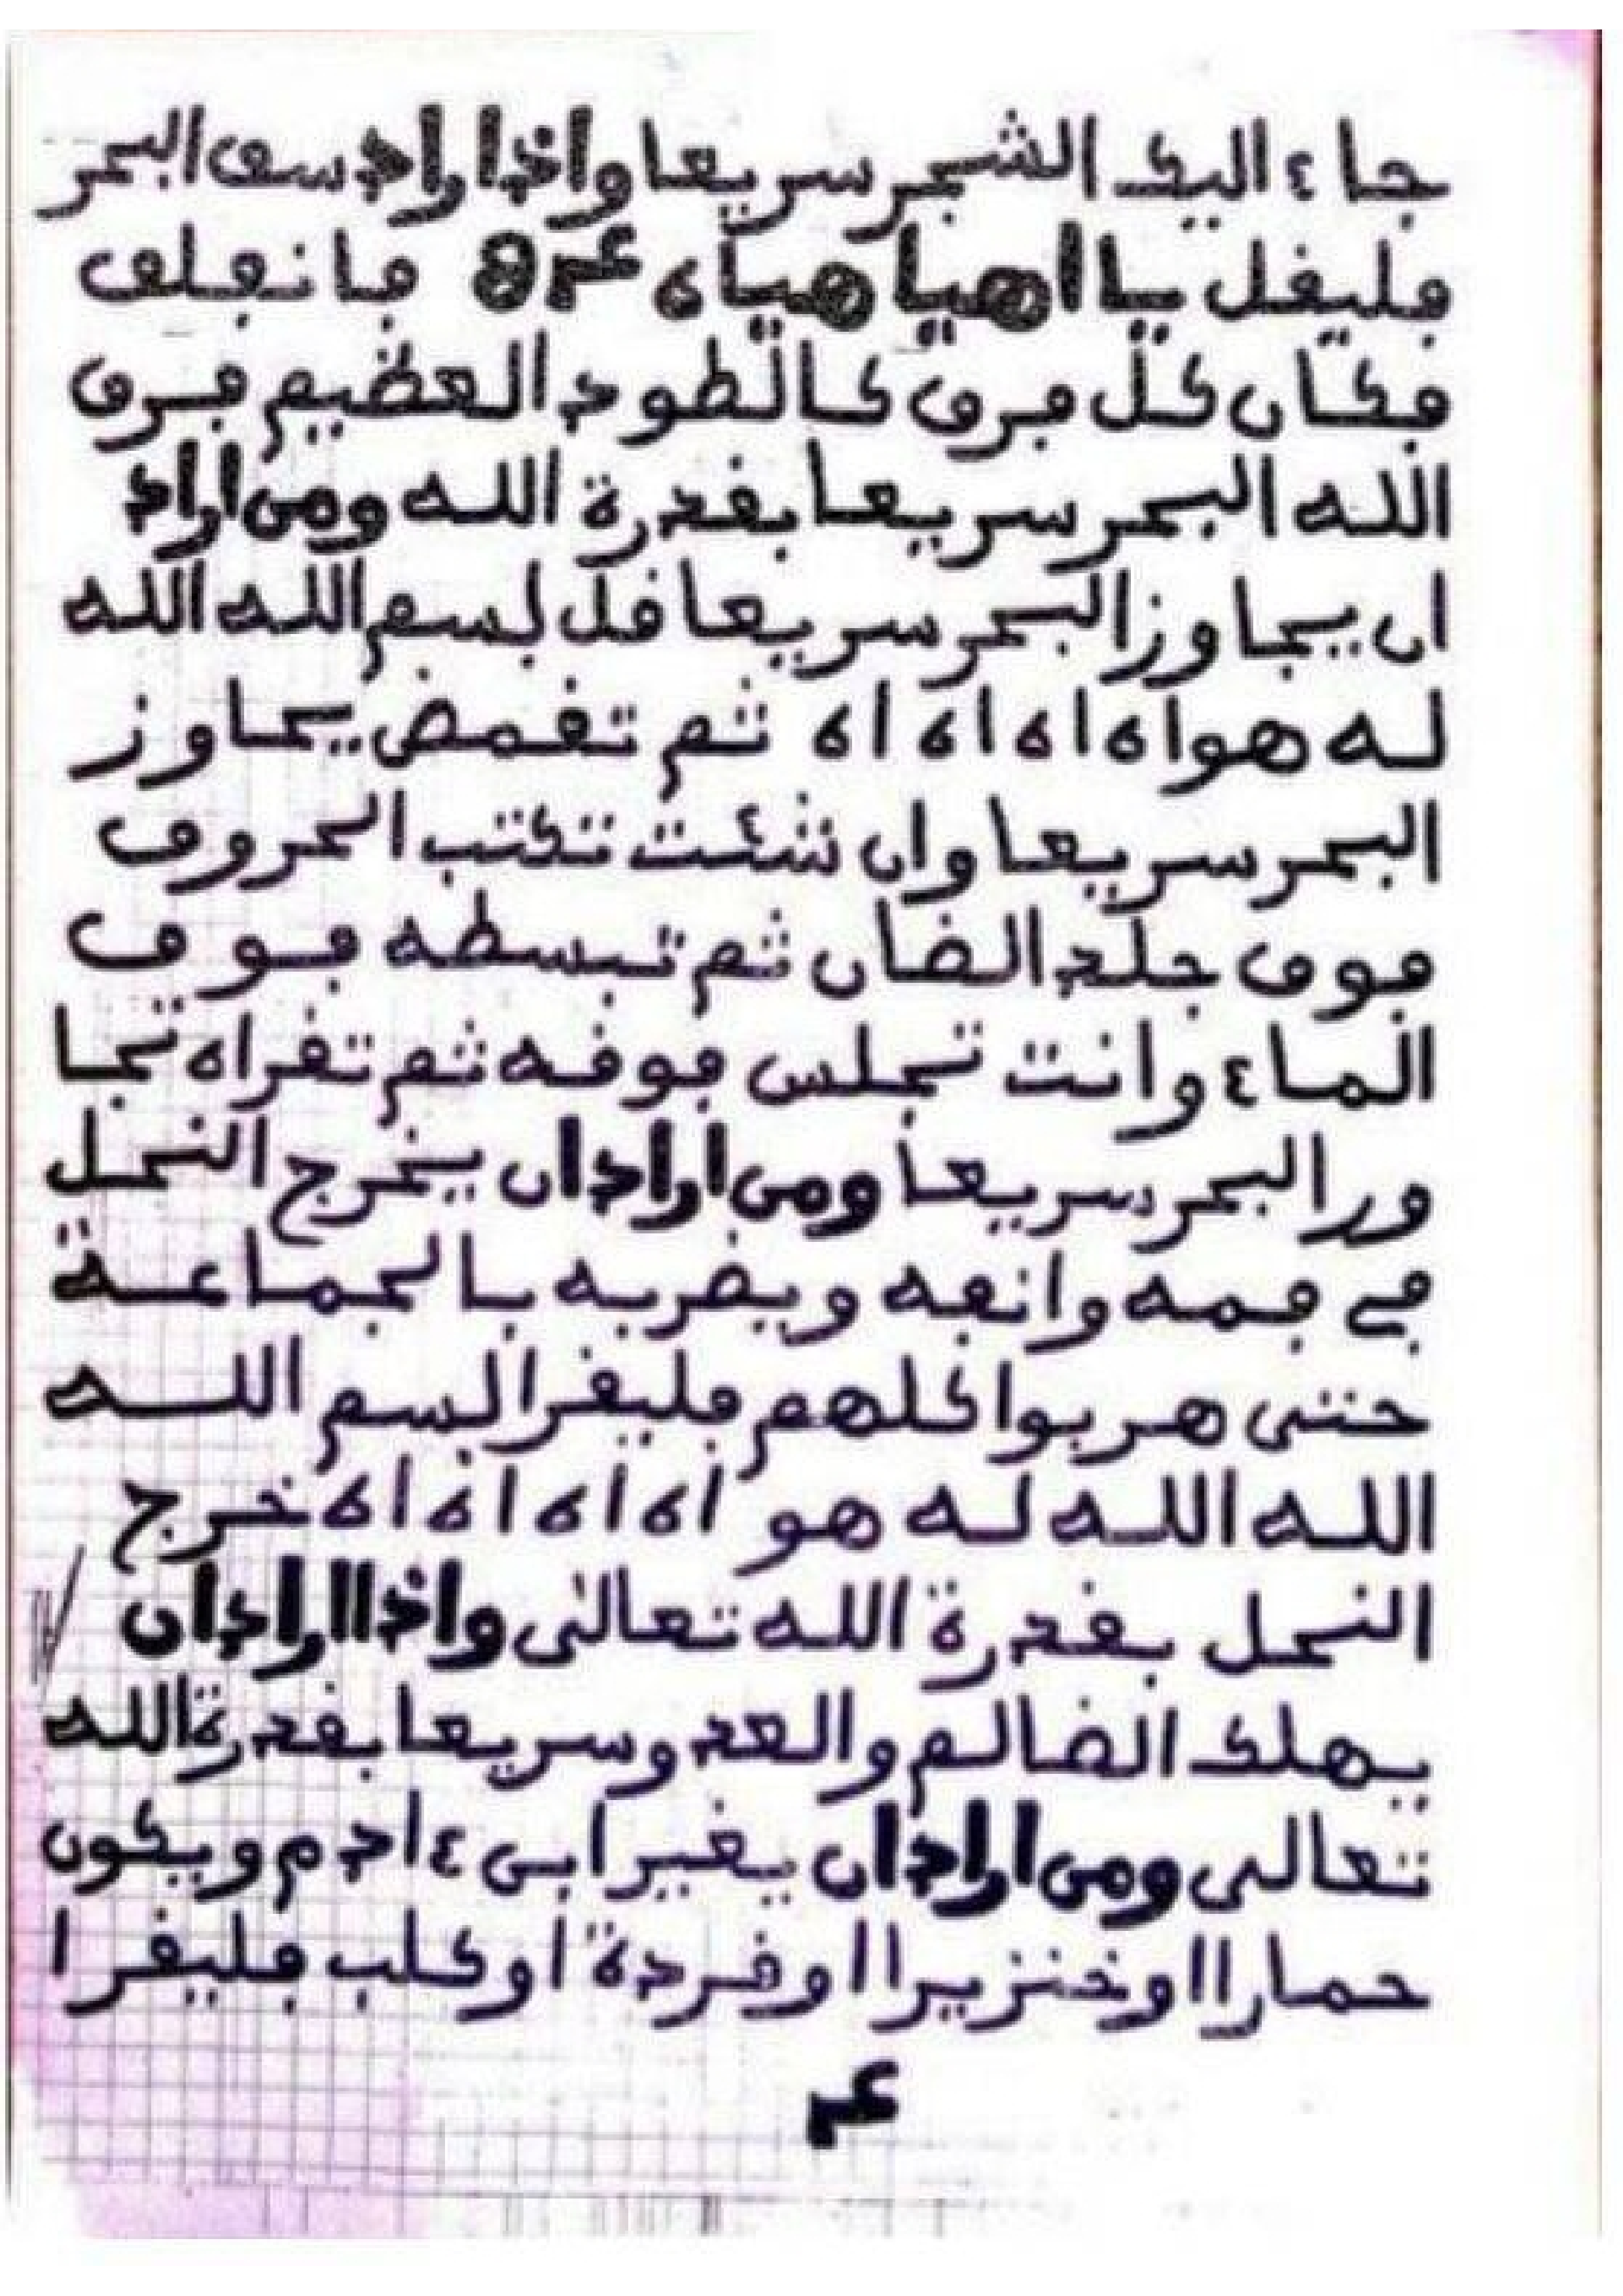 جاء اليك الشجر سريعا واذا اراد سف البحر
فليفل يا اهيا هياه عم٥ فانفلف
فكان كل فرق كالطود العظيم فرق
الله البحر سريعا بقدرة الله ومن اراد
ان يجاوز البحر سريعا قل بسم الله الله
له هو اه اه اه اه ثم تغمض يجاوز
البحر سريعا وان شئت تكتب الحروف
فوق جلد الضان ثم تبسطه فوق
الماء وانت تجلس فوقه ثم تقراه تجا
ور البحر سريعا ومن اراد ان يخرج النحل
في فمه وانفه ويضربه بالجماعة
حتى هربوا كلهم فليقرا بسم الله
الله الله له هو اه اه اه اه خرج
النحل بقدرة الله تعالى واذا اراد ان
يهلك الضالم والعدو سريعا بقدرة الله
تعالى ومن اراد ان يغير ابى ءادم ويكون
حمارا او خنزيرا او قردة او كلب فليقرا
عم